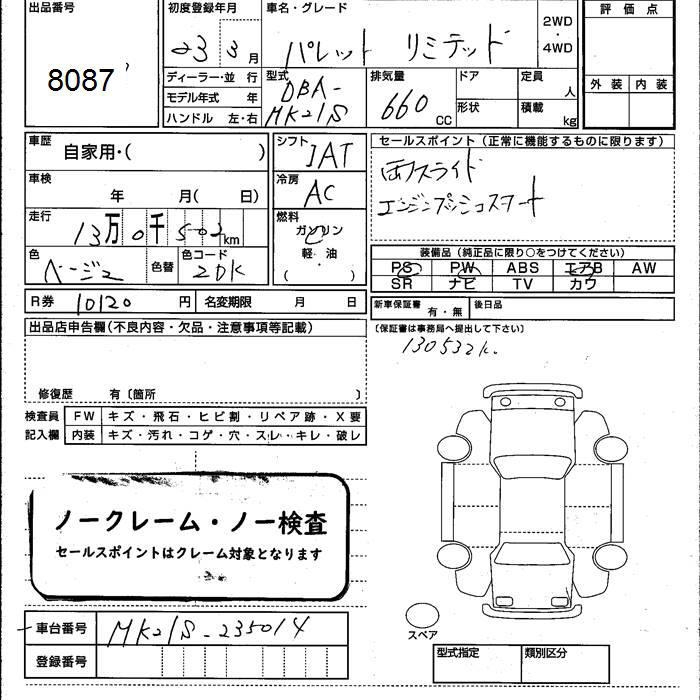 出品番号 8087
初度登録年月 23 3月
車名・グレード パレット リミテッド
2WD・4WD
評価点
外装 内装
ディーラー・並 行
モデル年式 年
ハンドル 左・右
型式 DBA-MK21S
排気量 660 CC
ドア
形状
定員 人
積載 kg
車歴 自家用・( )
シフト IAT
セールスポイント(正常に機能するものに限ります)
両スライド
エンジンプッシュスタート
車検 年 月( 日)
冷房 AC
走行 13万0千502km
燃料 ガソリン 軽・油 ( )
色 ベージュ
色替
色コード ZDK
装備品(純正品に限り○をつけてください)
PS PW ABS エアB AW
SR ナビ TV カワ
R券 10120円
名変期限 月 日
新車保証書 有・無
後日品
(保証書は事務局へ提出して下さい)
130532k.
出品店申告欄(不良内容・欠品・注意事項等記載)
修復歴 有〔箇所 〕
検査員記入欄
FW キズ・飛石・ヒビ割・リペア跡・X要
内装 キズ・汚れ・コゲ・穴・スレ・キレ・破レ
ノークレーム・ノー検査
セールスポイントはクレーム対象となります
車台番号 MK21S-235014
登録番号
スペア
型式指定
類別区分